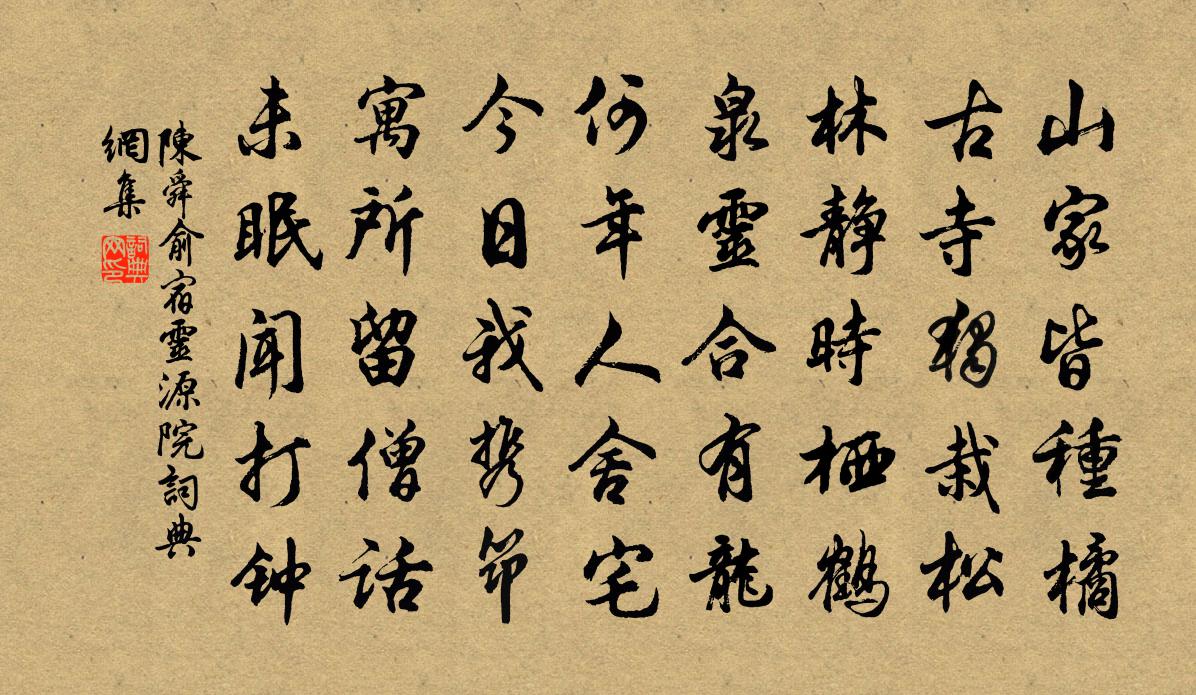 山家皆種橘
古寺獨栽松
林静時栖鶴
泉靈合有龍
何年人舍宅
今日我携笻
寓所留僧話
未眠聞打钟
陳舜俞宿靈源院詞典
網集
詞典
网印